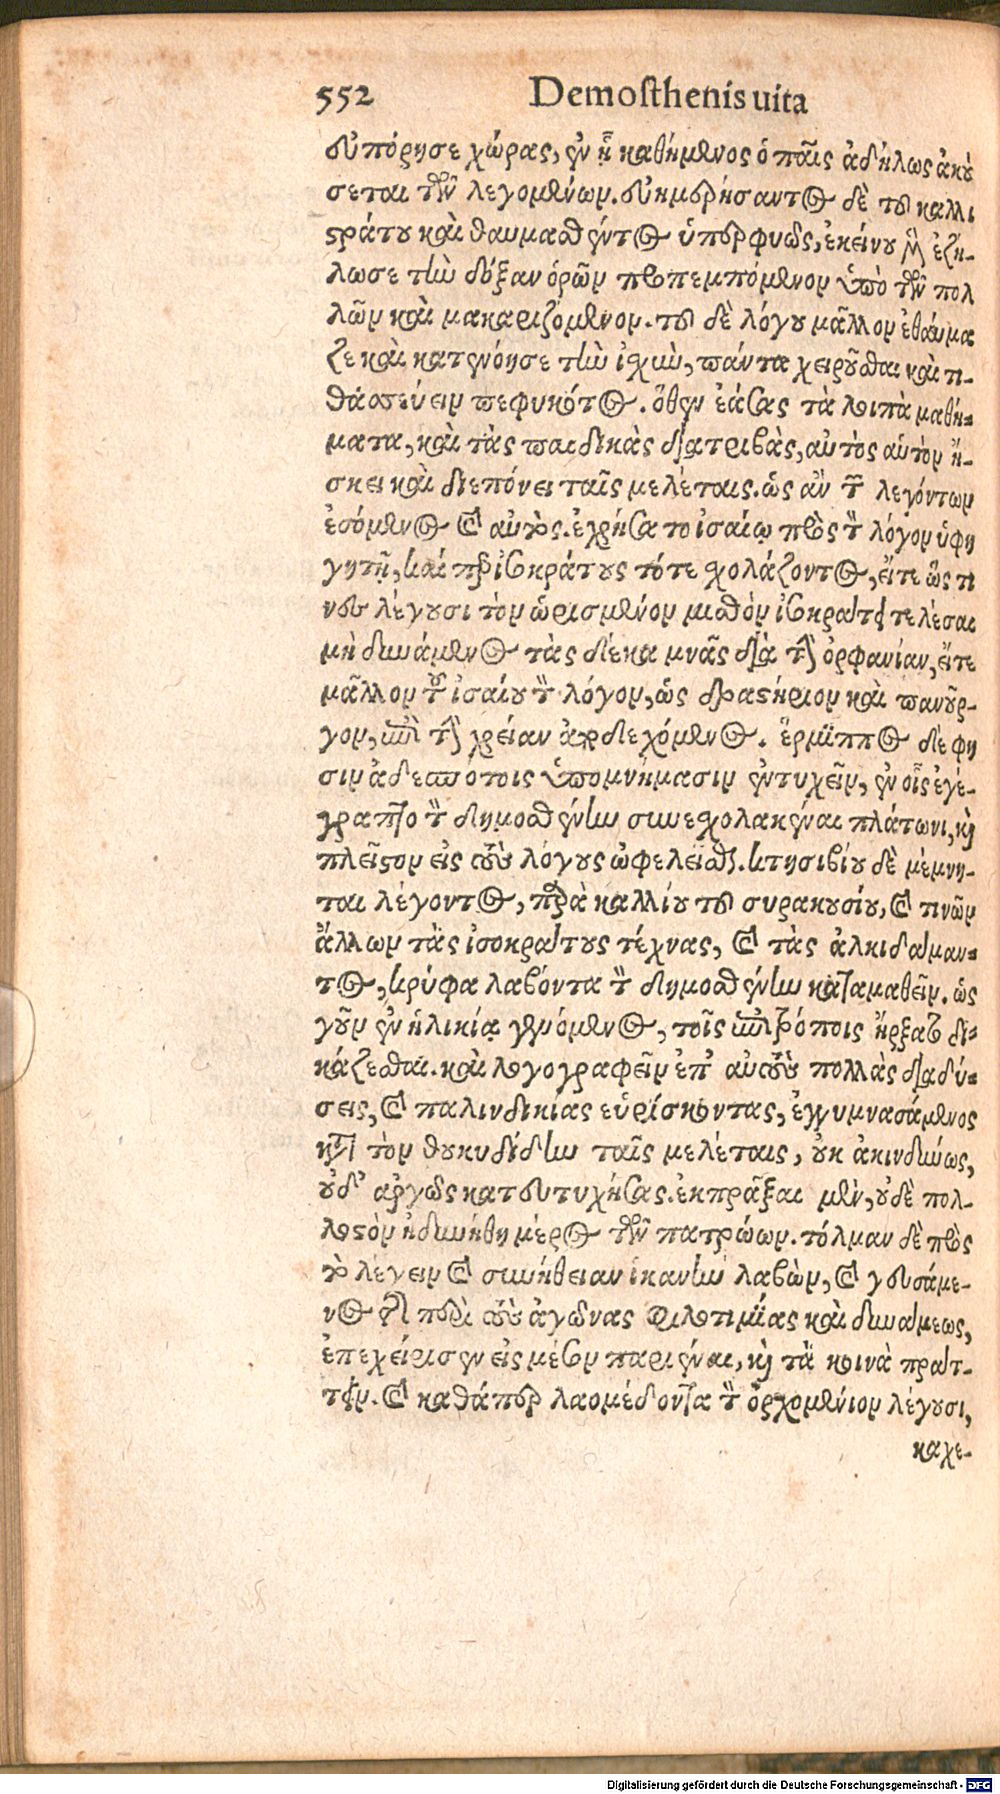 552 Demosthenis uita
εὐπόρησε χώρας, ἐν ᾗ καθήμενος ὁ παῖς ἀδήλως ἀκού
σεται τῶν λεγομένων. εὐημερήσαντος δὲ τοῦ καλλι
στράτου καὶ θαυμασθέντος ὑπερφυῶς, ἐκείνου μὲν ἐζή-
λωσε τὴν δόξαν ὁρῶν προπεμπόμενον ὑπὸ τῶν πολ
λῶν καὶ μακαριζόμενον. τοῦ δὲ λόγου μᾶλλον ἐθαύμα
ζε καὶ κατενόησε τὴν ἰχὺν, πάντα χειροῦσθαι καὶ τι-
θασσεύειν πεφυκότος. ὅθεν ἐάσας τὰ λοιπὰ μαθή-
ματα, καὶ τὰς παιδικὰς διατριβὰς, αὐτὸς αὑτὸν ἤ-
σκει καὶ διεπόνει ταῖς μελέταις. ὡς ἂν τῶν λεγόντων
ἐσόμενος καὶ αὐτός. ἐχρήσατο ἰσαίῳ πρὸς τὸν λόγον ὑφη
γητῇ, καίπερ ἰσοκράτους τότε σχολάζοντος, εἴτε ὥς τι
νες λέγουσι τὸν ὡρισμένον μισθὸν ἰσοκράτει τελέσαι
μὴ δυνάμενος τὰς δέκα μνᾶς διὰ τὴν ὀρφανίαν, εἴτε
μᾶλλον τοῦ ἰσαίου τὸν λόγον, ὡς δραστήριον καὶ πανοῦρ-
γον, ἐπὶ τὴν χρείαν ἀποδεχόμενος. ἕρμιππος δέ φη
σιν ἀδεσπότοις ὑπομνήμασιν ἐντυχεῖν, ἐν οἷς ἐγέ-
γραπτο τὸν δημοσθένην συνεσχολακέναι πλάτωνι, καὶ
πλεῖστον εἰς τοὺς λόγους ὠφελεῖσθαι. κτησιβίου δὲ μέμνη-
ται λέγοντος, παρὰ καλλίου τοῦ συρακουσίου, καὶ τινῶν
ἄλλων τὰς ἰσοκράτους τέχνας, καὶ τὰς ἀλκιδάμαν-
τος, κρύφα λαβόντα τὸν δημοσθένην καταμαθεῖν. ὡς
γοῦν ἐν ἡλικίᾳ γενόμενος, τοῖς ἐπιτρόποις ἤρξατο δι-
κάζεσθαι. καὶ λογογραφεῖν ἐπ' αὐτοὺς πολλὰς διαδύ-
σεις, καὶ παλινδικίας εὑρίσκοντας, ἐγγυμνασάμενος
κατὰ τὸν θουκυδίδην ταῖς μελέταις, οὐκ ἀκινδύνως,
οὐδ' ἀργῶς κατευτυχήσας. ἐκπρᾶξαι μὲν, οὐδὲ πολ-
λοστὸν ἠδυνήθη μέρος τῶν πατρώων. τόλμαν δὲ πρὸς
τὸ λέγειν καὶ συνήθειαν ἱκανὴν λαβὼν, καὶ γευσάμε-
νος τῆς περὶ τοὺς ἀγῶνας φιλοτιμίας καὶ δυνάμεως,
ἐπεχείρισεν εἰς μέσον παριέναι, καὶ τὰ κοινὰ πράτ-
τειν. καὶ καθάπερ λαομέδοντα τὸν ὀρχομένιον λέγουσι,
καχε-
Digitalisierung gefördert durch die Deutsche Forschungsgemeinschaft - DFG